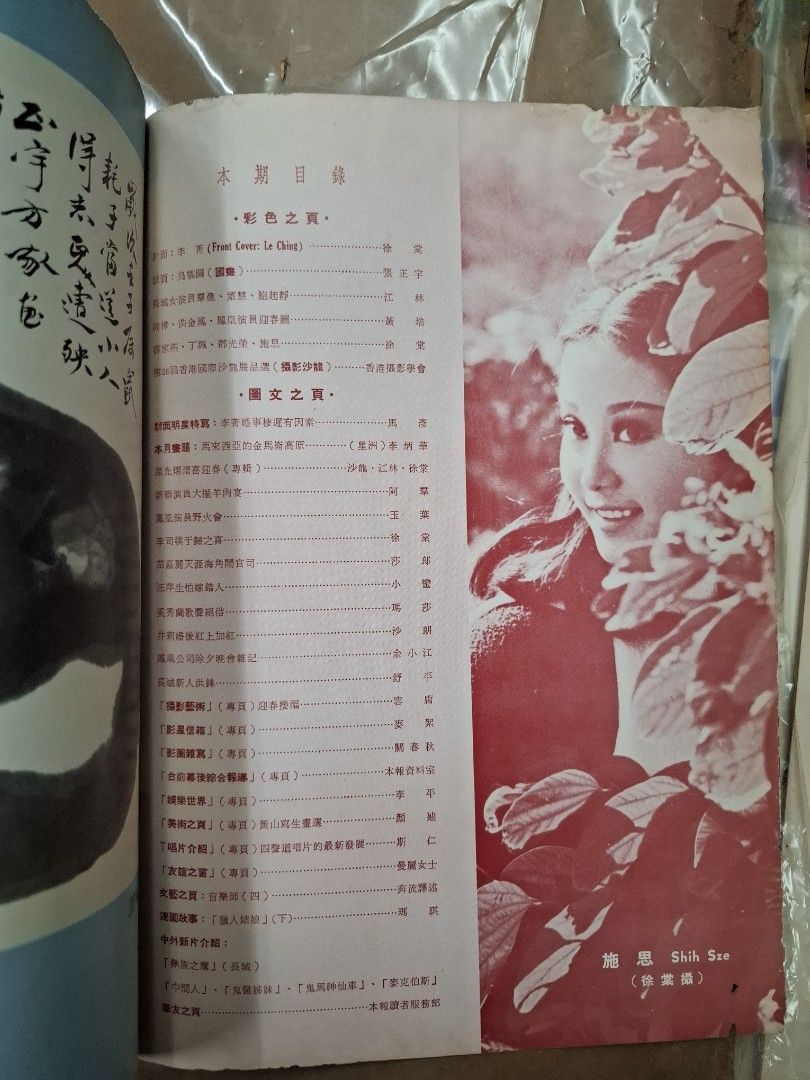 玉宇方啄
本期目錄
·彩色之頁·
封面：李菁(Front Cover: Le Ching)……徐棠
扉頁：烏鷄圖(國畫)……張正宇
長城女演員羣像、葉慧、鮑起靜……江林
苗金鳳、鳳凰演員迎春圖……黃培
蔣家燕、丁珮、鄧光榮、施思……徐棠
第26屆香港國際沙龍展品選(攝影沙龍)……香港攝影學會
·圖文之頁·
封面明星特寫：李菁婚事棲遲有因素……馬彥
本月畫題：馬來西亞的金馬崙高原……(星洲)李炳華
星光熠熠喜迎春(專輯)……沙龍·江林·徐棠
新聯演員大擺羊肉宴……阿羣
鳳凰演員野火會……玉葉
李司祺于歸之喜……徐棠
苗嘉麗天涯海角鬧官司……莎郎
汪萍生怕嫁錯人……小蠻
吳秀蘭歌聲絕俗……瑪莎
井莉婚後紅上加紅……沙朗
鳳凰公司除夕晚會雜記……余小江
長城新人洪錦……舒平
「攝影藝術」(專頁)迎春接福……容庸
「影星信箱」(專頁)……麥絮
「影圈雜寫」(專頁)……關春秋
「台前幕後綜合報導」(專頁)……本報資料室
「娛樂世界」(專頁)……李平
「美術之頁」(專頁)黃山寫生畫選……顏廸
「唱片介紹」(專頁)四聲道唱片的最新發展……斯仁
「友誼之窗」(專頁)……曼麗女士
文藝之頁：盲樂師(四)……奔流譯述
連圖故事：「獵人姑娘」(下)……瑪琪
中外新片介紹：
「彝族之鷹」(長城)
「中間人」、「鬼醫姊妹」、「鬼馬神仙車」、「麥克伯斯」
影友之頁……本報讀者服務部
施思 Shih Sze
(徐棠攝)